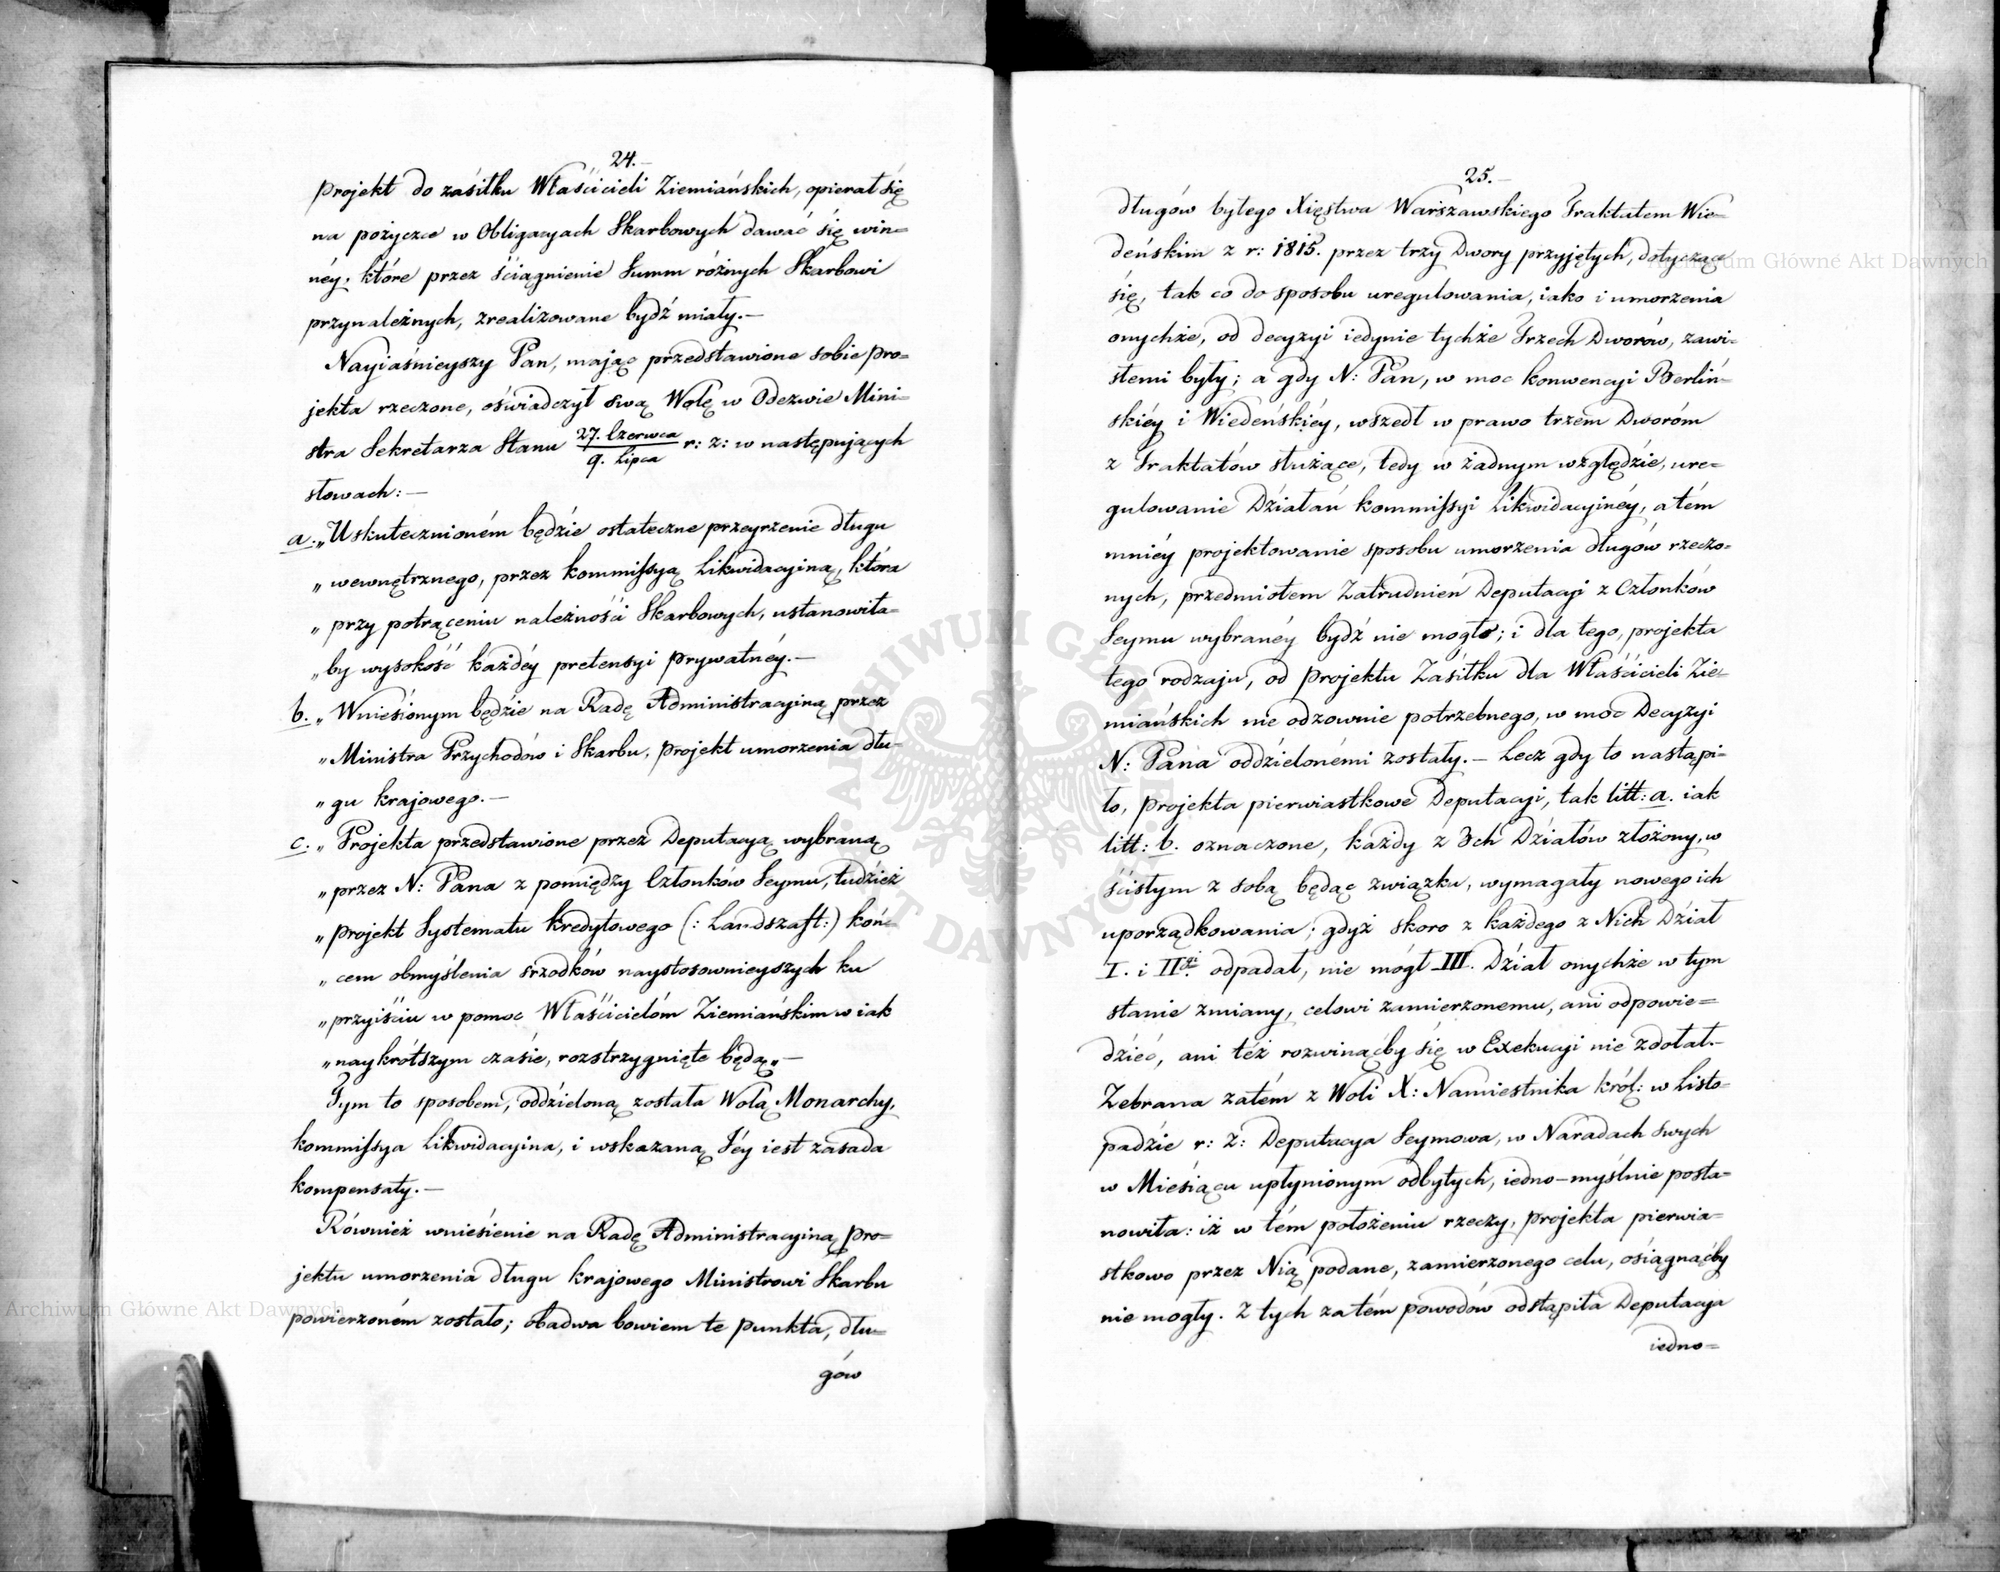 24.—
projekt do zasiłku Właścicieli Ziemiańskich, opierał się
na pożyczce w Obligacyach Skarbowych dawać się win=
néy, które przez ściągnienie Summ różnych Skarbowi
przynależnych, zrealizowane bydź miały.—
Nayiaśnieyszy Pan, mając przedstawione sobie pro=
jekta rzeczone, oświadczył swą Wolę w Odezwie Mini=
stra Sekretarza Stanu 27. Czerwca / 9. Lipca r: z: w następujących
słowach:—
a. „Uskutecznioném będzie ostateczne przeyrzenie długu
„wewnętrznego, przez kommissyą Likwidacyiną, która
„przy potrąceniu należności Skarbowych, ustanowiła=
„by wysokość każdéy pretensyi prywatnéy.—
b. „Wniesionym będzie na Radę Administracyiną przez
„Ministra Przychodów i Skarbu, projekt umorzenia dłu=
„gu krajowego.—
c. „Projekta przedstawione przez Deputacyą wybraną
„przez N: Pana z pomiędzy Członków Seymu, tudzież
„projekt Systematu kredytowego (: Landszaft:) koń=
„cem obmyślenia srzodków naystosownieyszych ku
„przyiściu w pomoc Właścicielóm Ziemiańskim w iak
„naykrótszym czasie, rozstrzygnięte będą„—
Tym to sposobem, oddzieloną została Wolą Monarchy,
kommissya Likwidacyina, i wskazaną Jéy iest zasada
kompensaty.—
Również wniesienie na Radę Administracyiną pro=
jektu umorzenia długu krajowego Ministrowi Skarbu
powierzoném zostało; obadwa bowiem te punkta, dłu=
gów
25.—
długów byłego Xięstwa Warszawskiego Traktatem Wie=
deńskim z r: 1815. przez trzy Dwory przyjętych, dotyczące
się, tak co do sposobu uregulowania, iako i umorzenia
onychże, od decyzyi iedynie tychże Trzech Dworów, zawi=
słemi były; a gdy N: Pan, w moc konwencyi Berliń=
skiéy i Wiedeńskiéy, wszedł w prawo trzem Dworóm
z Traktatów służące, tedy w żadnym względzie, ure=
gulowanie Działań kommissyi Likwidacyinéy, a tém
mniéy projektowanie sposobu umorzenia długów rzeczo=
nych, przedmiotem Zatrudnień Deputacyi z Członków
Seymu wybranéy bydź nie mogło; i dla tego, projekta
tego rodzaju, od projektu Zasiłku dla Właścicieli Zie=
miańskich nie odzownie potrzebnego, w moc Decyzyi
N: Pana oddzielonémi zostały.— Lecz gdy to nastąpi=
ło, projekta pierwiastkowe Deputacyi, tak litt: a. iak
litt: b. oznaczone, każdy z 3ch Działów złożony, w
ścisłym z sobą będąc związku, wymagały nowego ich
uporządkowania; gdyż skoro z każdego z Nich Dział
I. i IIgi odpadał, nie mógł III. Dział onychże w tym
stanie zmiany, celowi zamierzonemu, ani odpowie=
dzieć, ani téż rozwinąćby się w Exekucyi nie zdołał.—
Zebrana zatém z Woli X: Namiestnika król: w Listo=
padzie r: z: Deputacya Seymowa, w Naradach swych
w Miesiącu upłynionym odbytych, iedno-myślnie posta=
nowiła: iż w tém położeniu rzeczy, projekta pierwia=
stkowo przez Nią podane, zamierzonego celu, osiągnąćby
nie mogły. Z tych zatém powodów odstąpiła Deputacya
iedno=
Archiwum Główne Akt Dawnych
Archiwum Główne Akt Dawnych
ARCHIWUM GŁÓWNE AKT DAWNYCH